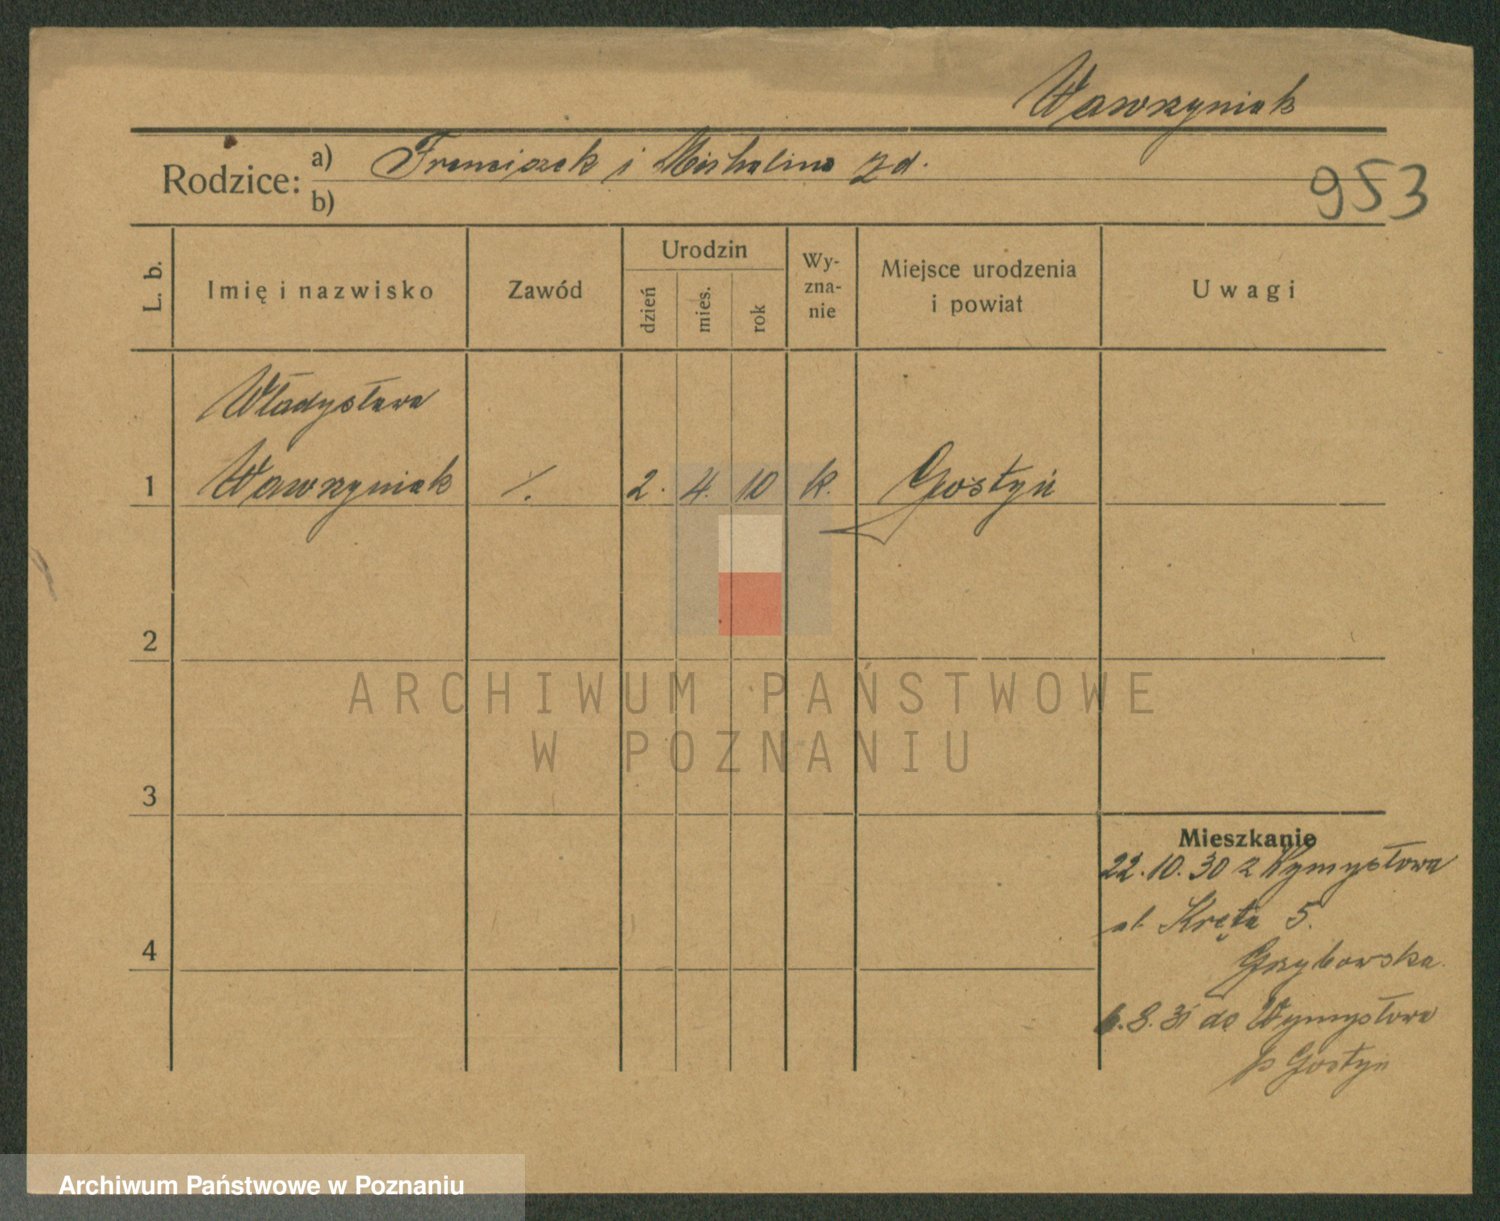 Wawrzyniak
Rodzice: a) Franciszek i Michalina zd.
b)
953
L. b.
Imię i nazwisko
Zawód
Urodzin
dzień
mies.
rok
Wy-
zna-
nie
Miejsce urodzenia
i powiat
Uwagi
Władysława
1 Wawrzyniak ./. 2. 4. 10 k. Gostyń
2
ARCHIWUM PAŃSTWOWE
W POZNANIU
3
Mieszkanie
22.10.30 z Wymysłowa
ul. Kręta 5.
4
Grzybowska.
6.8.31 do Wymysłowa
p Gostyń
Archiwum Państwowe w Poznaniu